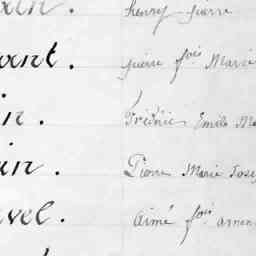 ain. henry pierre
ant. pierre fois Marie
in. Frédéric Emile Ma
in. Pierre Marie Jose
avel. Aimé fois aman